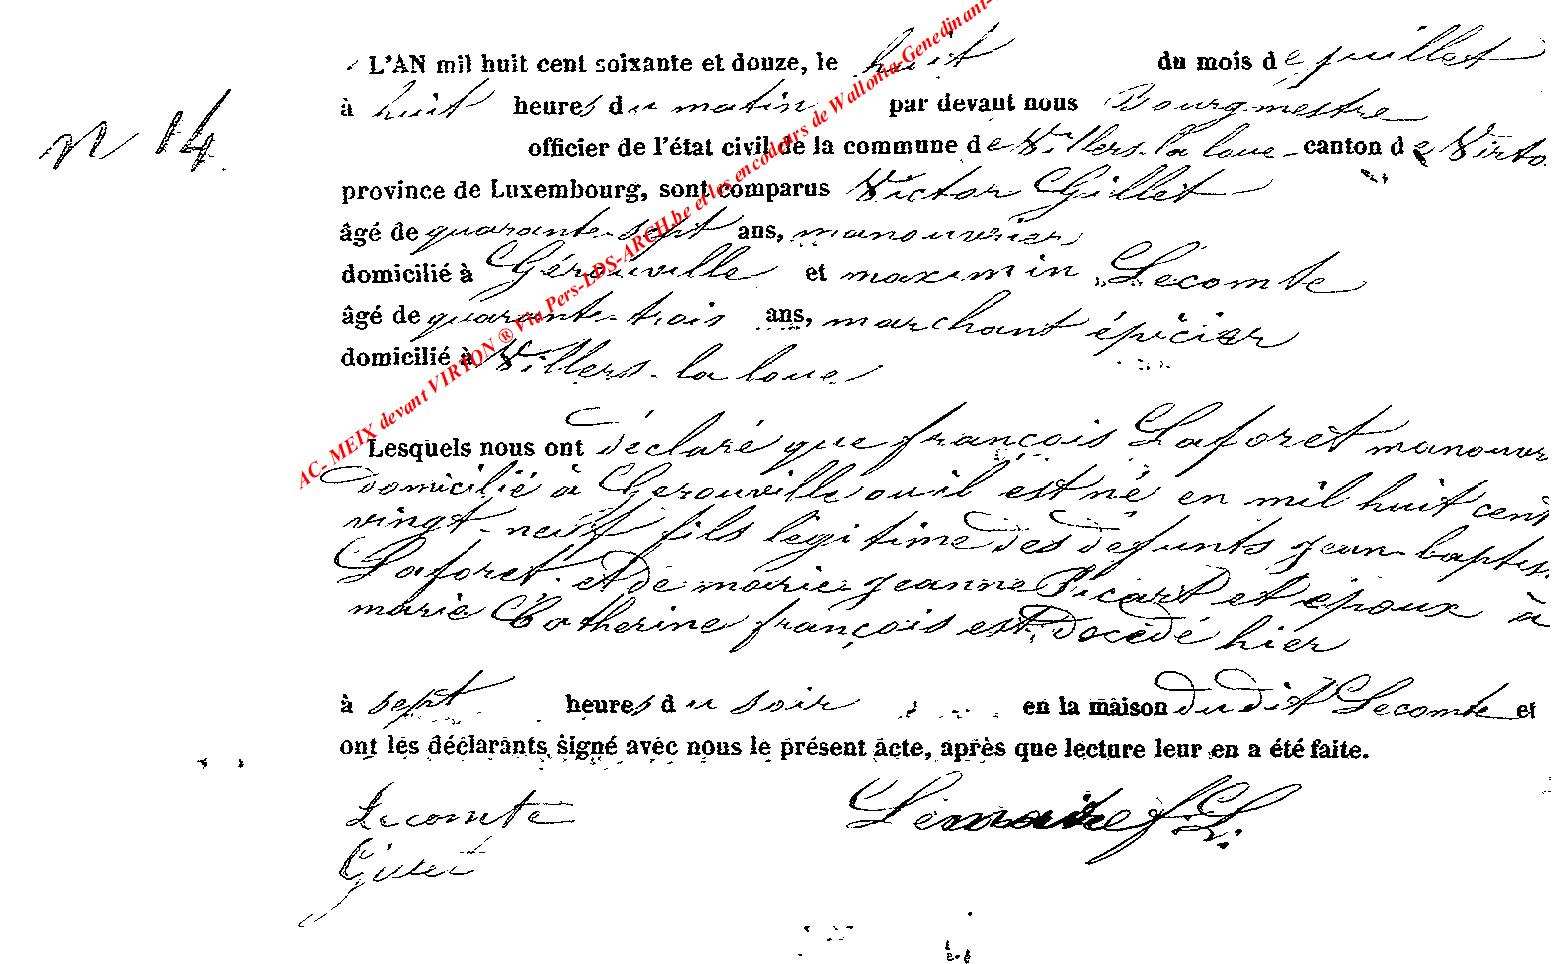 L'AN mil huit cent soixante et douze, le huit du mois de juillet
N 14
à huit heures du matin par devant nous Bourgmestre
officier de l'état civil de la commune de Villers-la loue - canton de Virto
province de Luxembourg, sont comparus Victor Gillet
âgé de quarante-sept ans, manouvrier
domicilié à Gérouville et maximin Lecomte
âgé de quarante-trois ans, marchant épicier
domicilié à Villers-la loue
Lesquels nous ont déclaré que françois Laforêt manouvr
domicilié à Gerouville ou il est né en mil huit cent
vingt-neuf fils légitime des défunts jean baptis
Laforet et de marie jeanne Picart et époux à
marie Catherine françois est décédé hier
à sept heures du soir en la maison du dit Lecomte et
ont les déclarants signé avec nous le présent acte, après que lecture leur en a été faite.
Lecomte
Lemaire f. L.
Gillet
AC- MEIX devant VIRTON ® Via Pers-LDS-ARCH.be et les encodeurs de Wallonia-Genedinant-